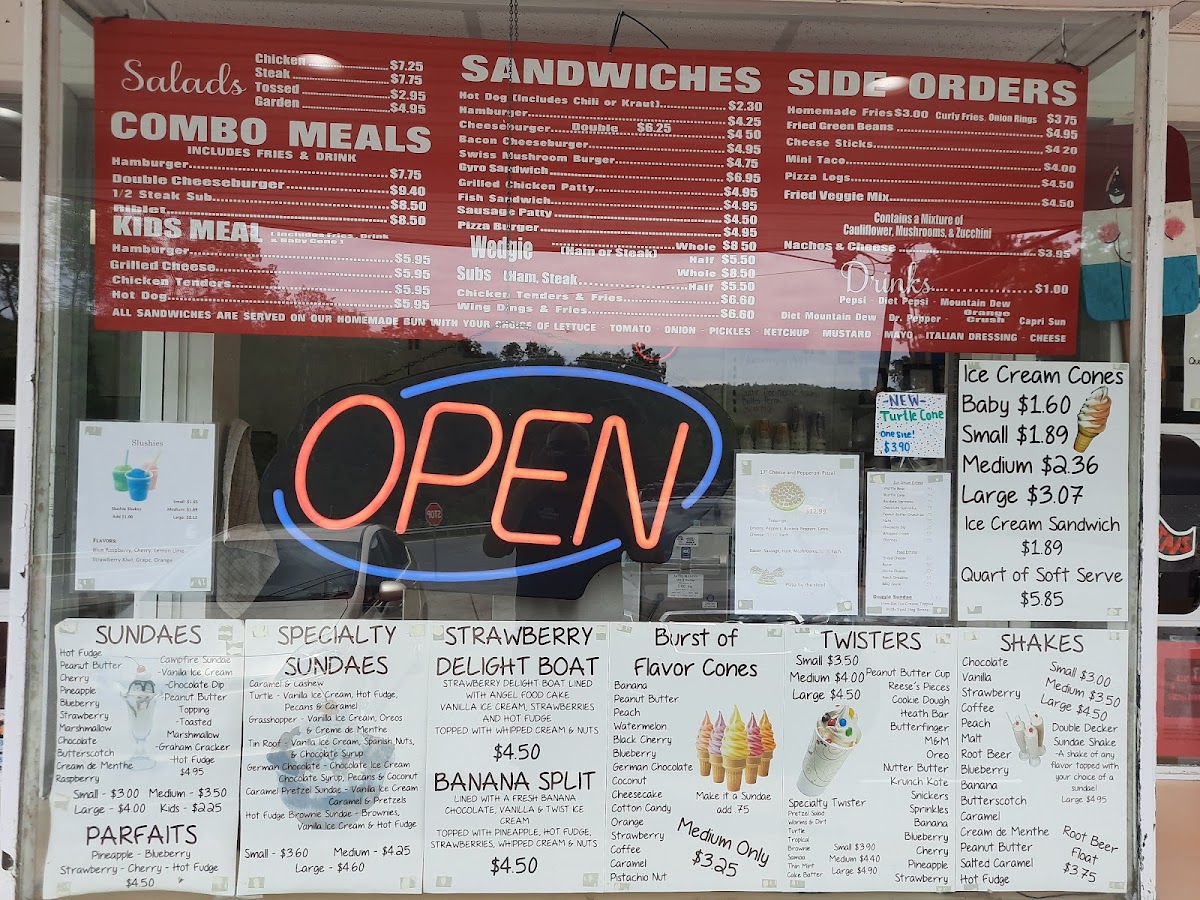 Salads
Chicken $7.25
Steak $7.75
Tossed $2.95
Garden $4.95
COMBO MEALS
INCLUDES FRIES & DRINK
Hamburger $7.75
Double Cheeseburger $9.40
1/2 Steak Sub $8.50
Riblet $8.50
KIDS MEAL (Includes Fries, Drink & Baby Cone)
Hamburger $5.95
Grilled Cheese $5.95
Chicken Tenders $5.95
Hot Dog $5.95
SANDWICHES
Hot Dog (Includes Chili or Kraut) $2.30
Hamburger $4.25
Cheeseburger Double $6.25 $4.50
Bacon Cheeseburger $4.95
Swiss Mushroom Burger $4.75
Gyro Sandwich $6.95
Grilled Chicken Patty $4.95
Fish Sandwich $4.95
Sausage Patty $4.50
Pizza Burger $4.95
Wedgie (Ham or Steak) Whole $8.50
Half $5.50
Subs (Ham, Steak Whole $8.50
Half $5.50
Chicken Tenders & Fries $6.60
Wing Dings & Fries $6.60
SIDE ORDERS
Homemade Fries $3.00 Curly Fries, Onion Rings $3.75
Fried Green Beans $4.95
Cheese Sticks $4.20
Mini Taco $4.00
Pizza Logs $4.50
Fried Veggie Mix $4.50
Contains a Mixture of
Cauliflower, Mushrooms, & Zucchini
Nachos & Cheese $3.95
Drinks $1.00
Pepsi - Diet Pepsi - Mountain Dew
Diet Mountain Dew Dr. Pepper - Orange Crush Capri Sun
ALL SANDWICHES ARE SERVED ON OUR HOMEMADE BUN WITH YOUR CHOICE OF LETTUCE TOMATO ONION - PICKLES - KETCHUP MUSTARD MAYO - ITALIAN DRESSING - CHEESE
Slushies
Small $1.35
Medium $1.89
Large $2.12
Double Shakes
Add $1.00
FLAVORS
Blue Raspberry, Cherry, Lemon Lime
Strawberry Kiwi, Grape, Orange
OPEN
STOP
12" Cheese and Pepperoni Pizza!
$12.99
Pizza by the slice!
-NEW-
Turtle Cone
one size!
$3.90
Ice Cream Cones
Baby $1.60
Small $1.89
Medium $2.36
Large $3.07
Ice Cream Sandwich
$1.89
Quart of Soft Serve
$5.85
SUNDAES
Hot Fudge
Peanut Butter
Cherry
Pineapple
Blueberry
Strawberry
Marshmallow
Chocolate
Butterscotch
Cream de Menthe
Raspberry
Campfire Sundae
-Vanilla Ice Cream
-Chocolate Dip
-Peanut Butter
Topping
-Toasted
Marshmallow
-Graham Cracker
-Hot Fudge
$4.95
Small - $3.00 Medium - $3.50
Large - $4.00 Kids - $2.25
PARFAITS
Pineapple - Blueberry
Strawberry - Cherry - Hot Fudge
$4.50
SPECIALTY
SUNDAES
Caramel & Cashew
Turtle - Vanilla Ice Cream, Hot Fudge,
Pecans & Caramel
Grasshopper - Vanilla Ice Cream, Oreos
& Creme de Menthe
Tin Roof - Vanilla Ice Cream, Spanish Nuts,
& Chocolate Syrup
German Chocolate - Chocolate Ice Cream
Chocolate Syrup, Pecans & Coconut
Caramel Pretzel Sundae - Vanilla Ice Cream
Caramel & Pretzels
Hot Fudge Brownie Sundae - Brownies,
Vanilla Ice Cream & Hot Fudge
Small - $3.60 Medium - $4.25
Large - $4.60
STRAWBERRY
DELIGHT BOAT
STRAWBERRY DELIGHT BOAT LINED
WITH ANGEL FOOD CAKE
VANILLA ICE CREAM, STRAWBERRIES
AND HOT FUDGE
TOPPED WITH WHIPPED CREAM & NUTS
$4.50
BANANA SPLIT
LINED WITH A FRESH BANANA
CHOCOLATE, VANILLA & TWIST ICE
CREAM
TOPPED WITH PINEAPPLE, HOT FUDGE,
STRAWBERRIES, WHIPPED CREAM & NUTS
$4.50
Burst of
Flavor Cones
Banana
Peanut Butter
Peach
Watermelon
Black Cherry
Blueberry
German Chocolate
Coconut
Cheesecake
Cotton Candy
Orange
Strawberry
Coffee
Caramel
Pistachio Nut
Make it a Sundae
add .75
Medium Only
$3.25
TWISTERS
Small $3.50
Medium $4.00
Large $4.50
Peanut Butter Cup
Reese's Pieces
Cookie Dough
Heath Bar
Butterfinger
M&M
Oreo
Nutter Butter
Krunch Kote
Snickers
Sprinkles
Banana
Blueberry
Cherry
Pineapple
Strawberry
Specialty Twister
Pretzel Salad
Worms & Dirt
Turtle
Tropical
Brownie
Samoa
Thin Mint
Cake Batter
Small $3.90
Medium $4.40
Large $4.90
SHAKES
Chocolate
Vanilla
Strawberry
Coffee
Peach
Malt
Root Beer
Blueberry
Banana
Butterscotch
Caramel
Cream de Menthe
Peanut Butter
Salted Caramel
Hot Fudge
Small $3.00
Medium $3.50
Large $4.50
Double Decker
Sundae Shake
-A shake of any
flavor topped with
your choice of a
sundae!
Large $4.95
Root Beer
Float
$3.75